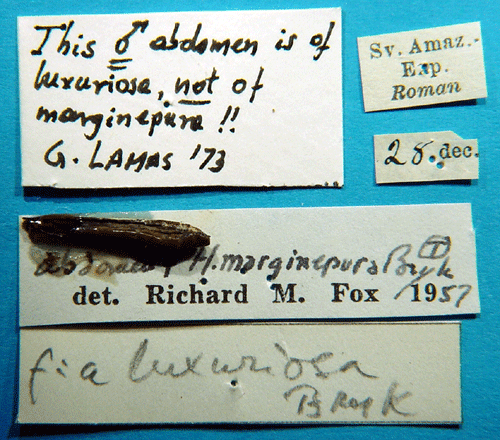 This ♂ abdomen is of
luxuriosa, not of
marginepura !!
G. LAMAS '73
Sv. Amaz.-
Exp.
Roman
28. dec.
abdomen H. marginepura Bryk
det. Richard M. Fox 1957
f:a luxuriosa
Bryk